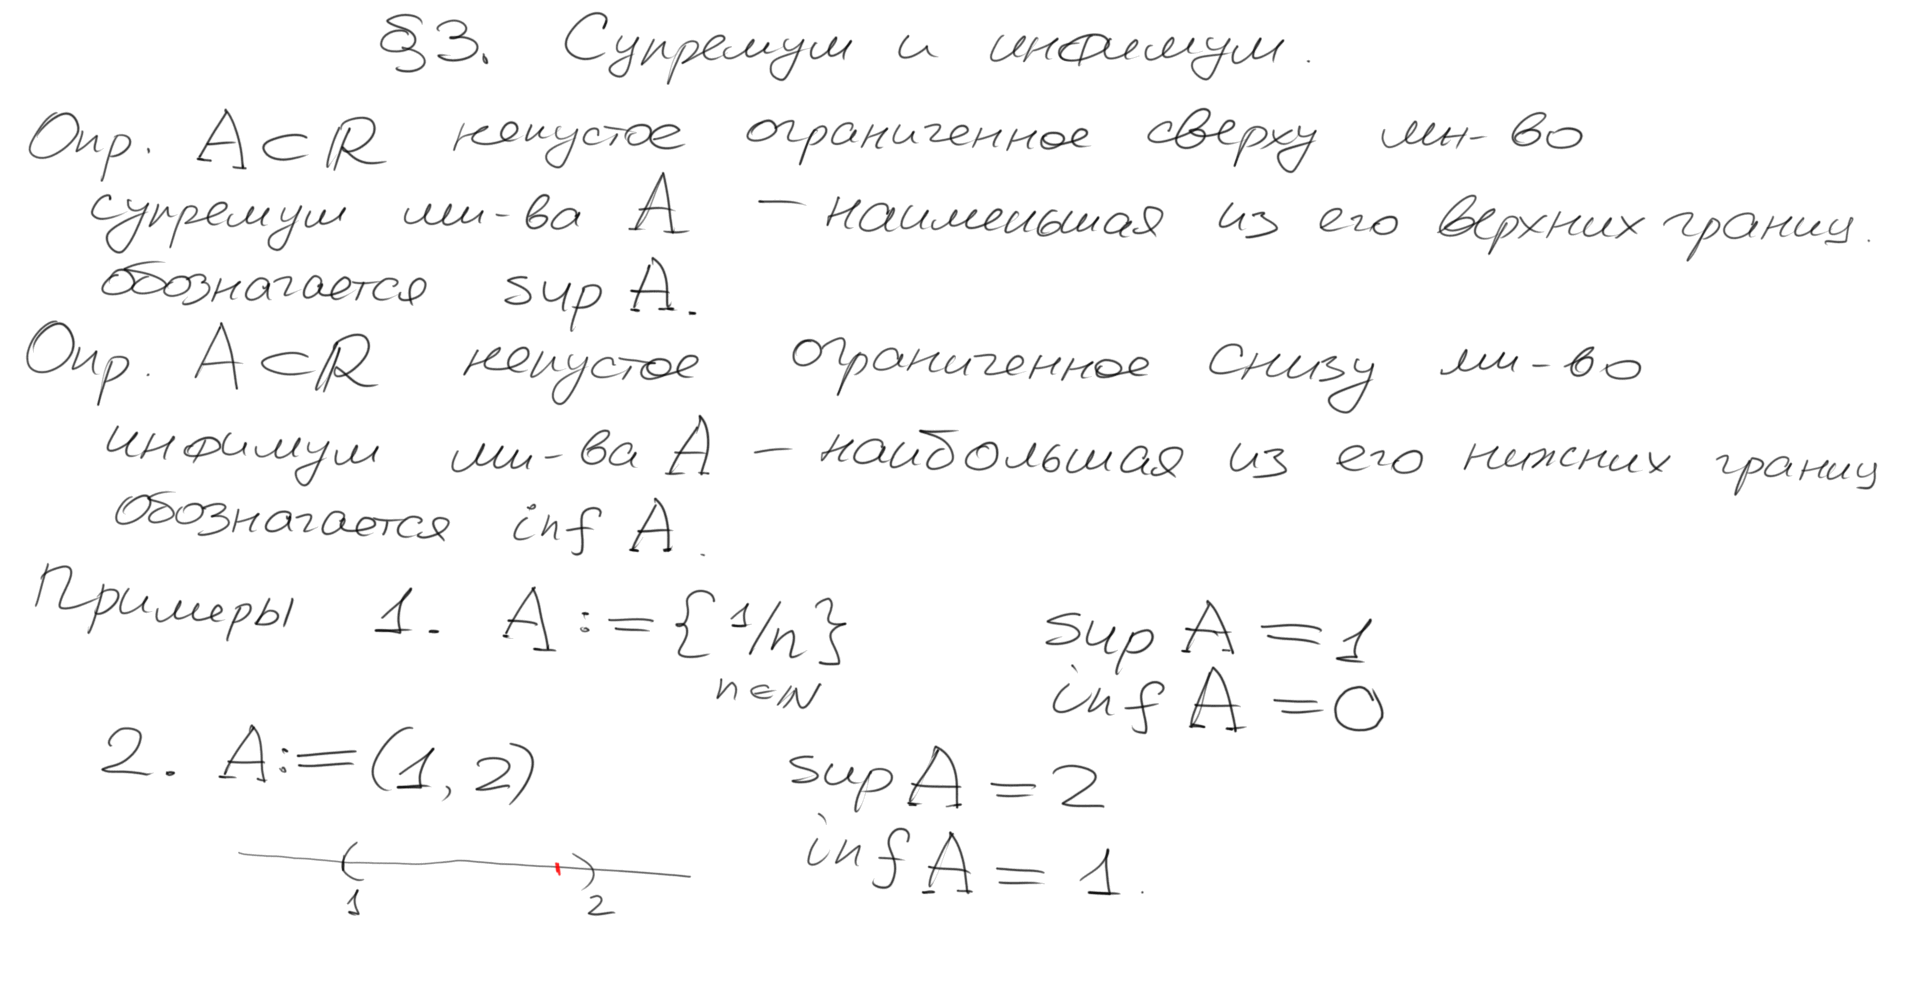 §3. Супремум и инфимум.
Опр. A⊂ℝ непустое ограниченное сверху мн-во
супремум мн-ва A — наименьшая из его верхних границ.
обозначается sup A.
Опр. A⊂ℝ непустое ограниченное снизу мн-во
инфимум мн-ва A — наибольшая из его нижних границ
обозначается inf A.
Примеры 1. A := {1/n} sup A = 1
n∈ℕ inf A = 0
2. A := (1, 2) sup A = 2
inf A = 1.
1 2